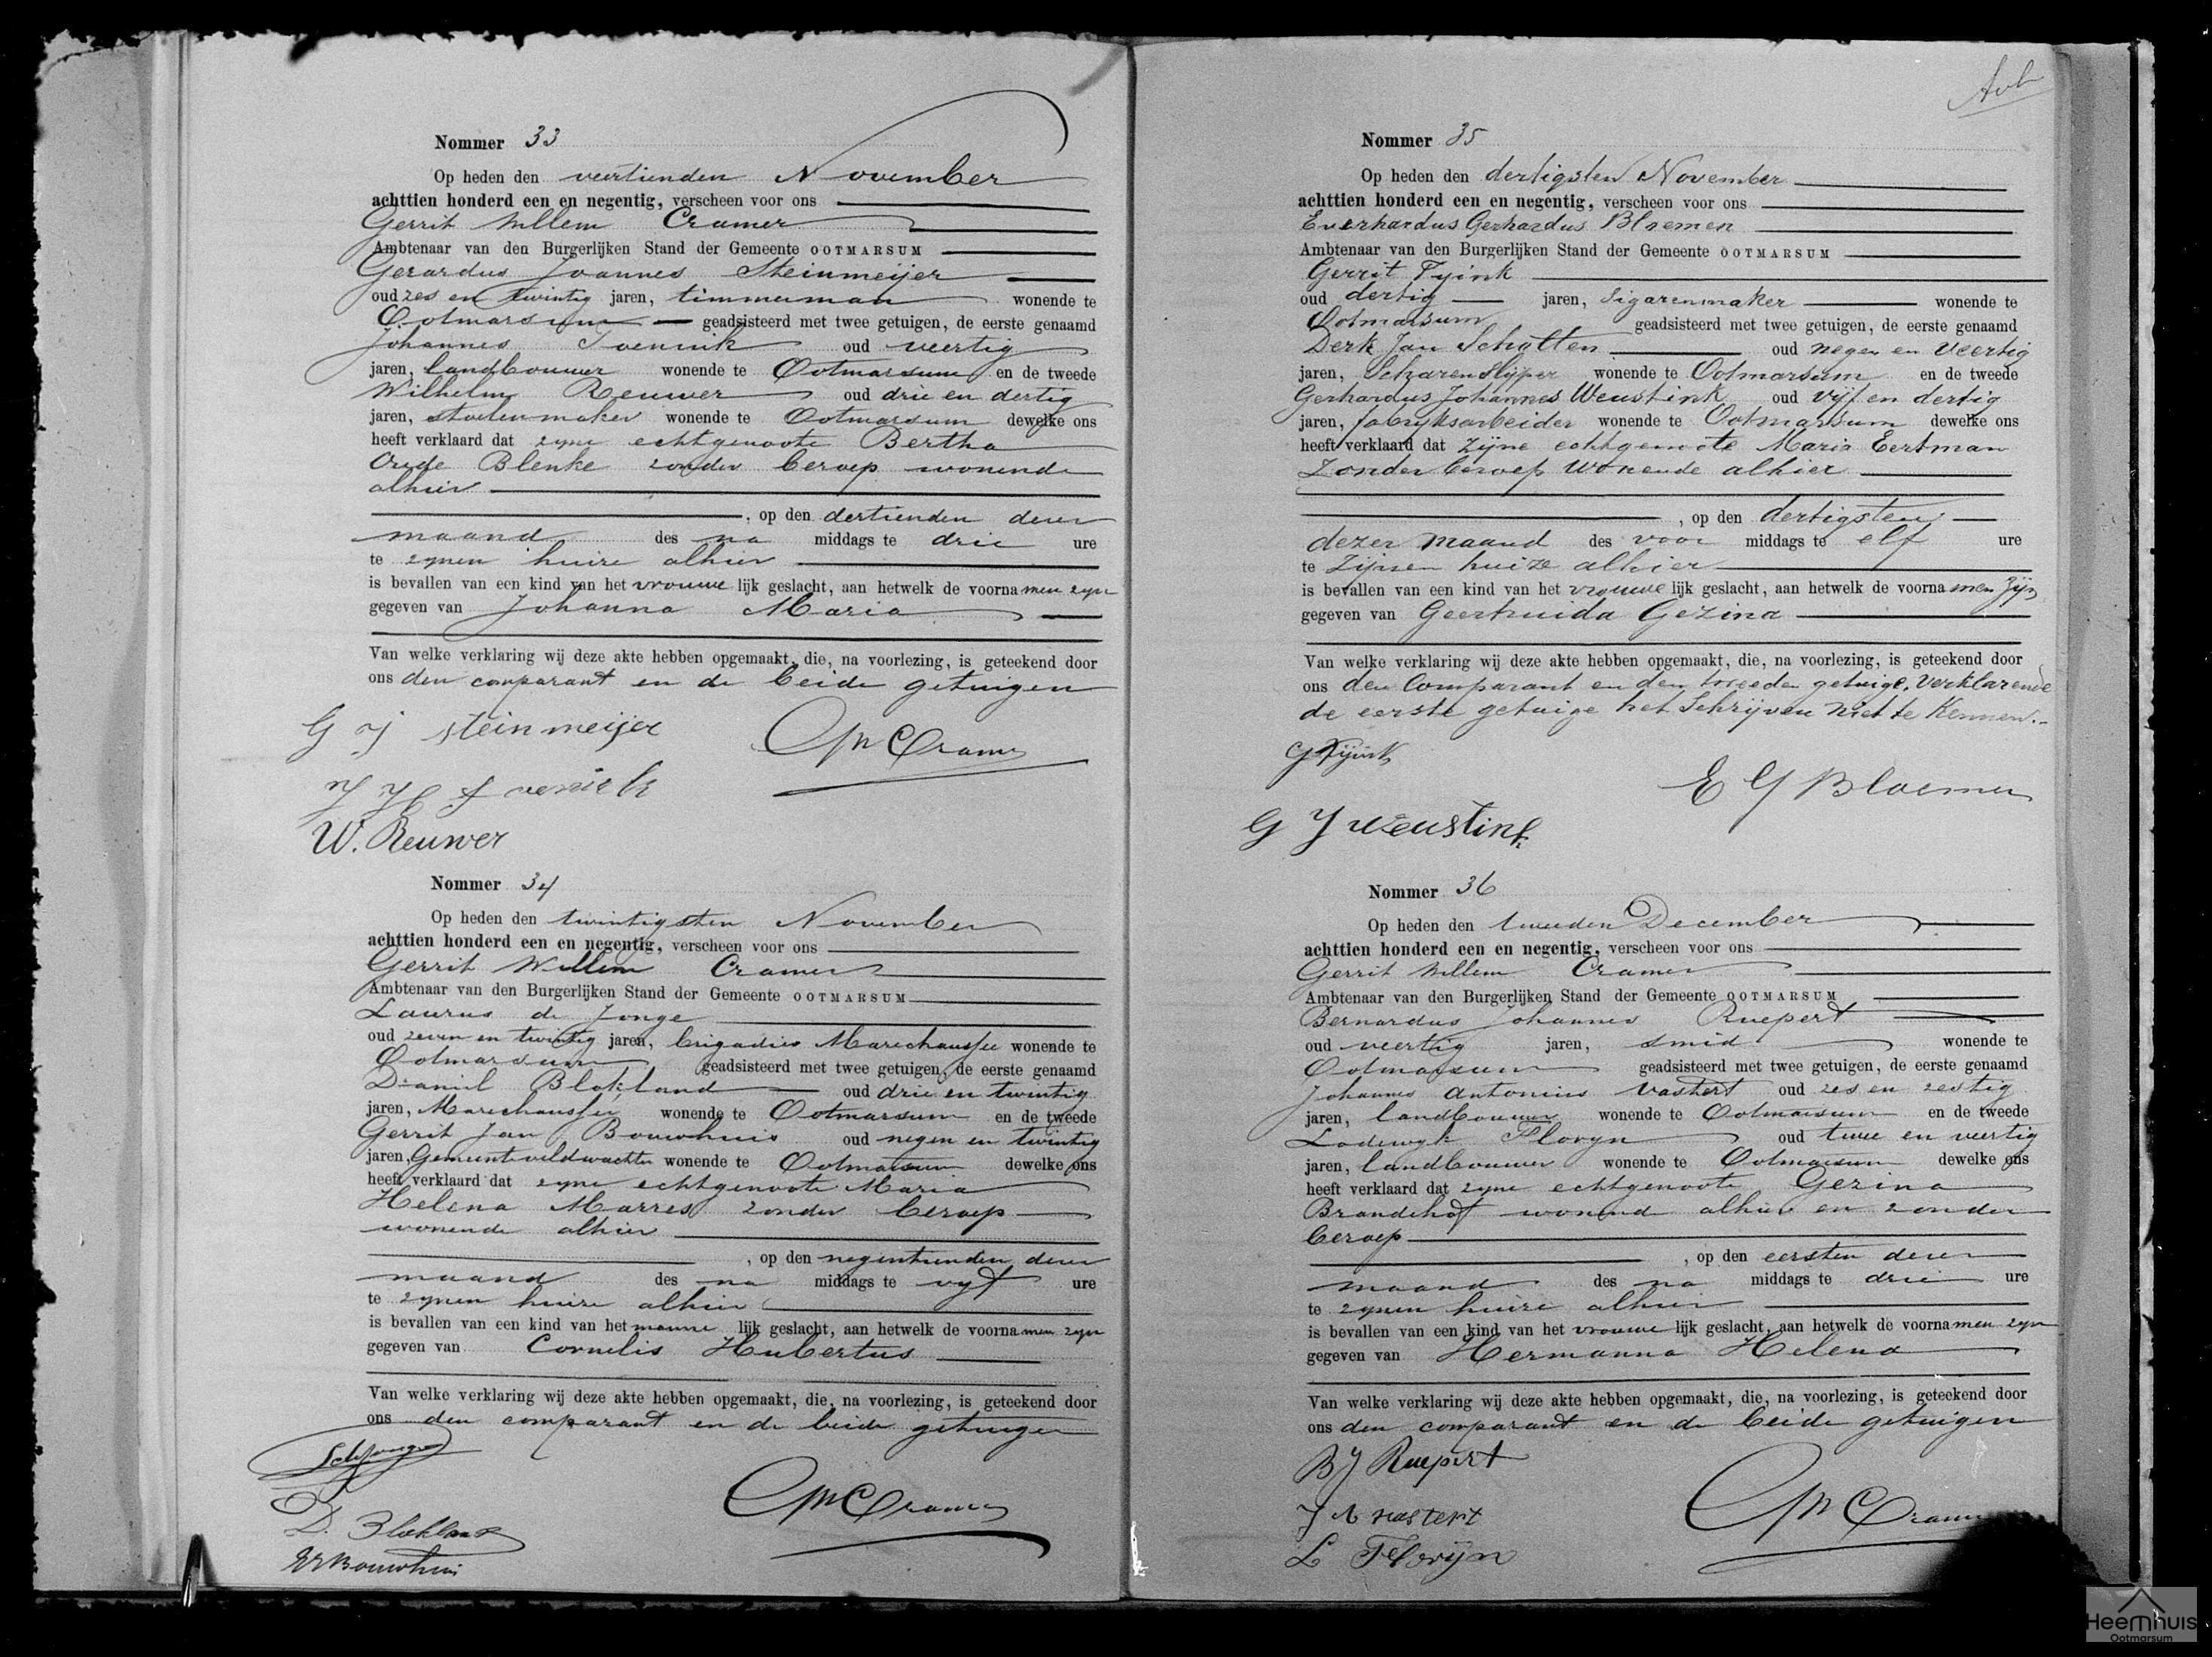 Nommer 33
Op heden den veertienden November
achttien honderd een en negentig, verscheen voor ons
Gerrit Willem Cramer
Ambtenaar van den Burgerlijken Stand der Gemeente OOTMARSUM
Gerardus Joannes Steinmeijer
oud zes en twintig jaren, timmerman wonende te
Ootmarsum geadsisteerd met twee getuigen, de eerste genaamd
Johannes oud veertig
jaren, landbouwer wonende te Ootmarsum en de tweede
Wilhelm Reuwer oud drie en dertig
jaren, stoelenmaker wonende te Ootmarsum dewelke ons
heeft verklaard dat zyne echtgenoote Bertha
Blenke zonder beroep wonende
alhier
, op den dertienden dezer
maand des na middags te drie ure
te zynen huize alhier
is bevallen van een kind van het vrouwe lijk geslacht, aan hetwelk de voorna men zyn
gegeven van Johanna Maria
Van welke verklaring wij deze akte hebben opgemaakt, die, na voorlezing, is geteekend door
ons den comparant en de beide getuigen
G J Steinmeijer
GW Cramer
W. Reuwer
Nommer 34
Op heden den twintigsten November
achttien honderd een en negentig, verscheen voor ons
Gerrit Willem Cramer
Ambtenaar van den Burgerlijken Stand der Gemeente OOTMARSUM
Laurus de Jonge
oud zeven en twintig jaren, brigadier Marechaussee wonende te
Ootmarsum geadsisteerd met twee getuigen, de eerste genaamd
Daniel Blokland oud drie en twintig
jaren, Marechaussee wonende te Ootmarsum en de tweede
Gerrit Jan Bouwhuis oud negen en twintig
jaren, Gemeenteveldwachter wonende te Ootmarsum dewelke ons
heeft verklaard dat zyne echtgenoote Maria
Helena Marres zonder beroep
wonende alhier
, op den negentienden dezer
maand des na middags te vyf ure
te zynen huize alhier
is bevallen van een kind van het manne lijk geslacht, aan hetwelk de voorna men zyn
gegeven van Cornelis Hubertus
Van welke verklaring wij deze akte hebben opgemaakt, die, na voorlezing, is geteekend door
ons den comparant en de beide getuigen
GW Cramer
D. Blokland
Bouwhuis
Nommer 35
Op heden den dertigsten November
achttien honderd een en negentig, verscheen voor ons
Everhardus Gerhardus Bloemen
Ambtenaar van den Burgerlijken Stand der Gemeente OOTMARSUM
Gerrit Tyink
oud dertig jaren, Sigarenmaker wonende te
Ootmarsum geadsisteerd met twee getuigen, de eerste genaamd
Derk Jan Scholten oud negen en Veertig
jaren, Scharenslijper wonende te Ootmarsum en de tweede
Gerhardus Johannes Weustink oud vijf en dertig
jaren, fabryksarbeider wonende te Ootmarsum dewelke ons
heeft verklaard dat Zijne echtgenoote Maria Eertman
Zonder beroep Wonende alhier
, op den dertigsten
dezer maand des voor middags te elf ure
te Zijnen huize alhier
is bevallen van een kind van het vrouwe lijk geslacht, aan hetwelk de voorna men Zijn
gegeven van Geertruida Gezina
Van welke verklaring wij deze akte hebben opgemaakt, die, na voorlezing, is geteekend door
ons den Comparant en den tweeden getuige, Verklarende
de eerste getuige het Schrijven niet te Kennen.
G Tyink
E G Bloemen
G J Weustink
Nommer 36
Op heden den tweeden December
achttien honderd een en negentig, verscheen voor ons
Gerrit Willem Cramer
Ambtenaar van den Burgerlijken Stand der Gemeente OOTMARSUM
Bernardus Johannes Ruepert
oud veertig jaren, smid wonende te
Ootmarsum geadsisteerd met twee getuigen, de eerste genaamd
Johannes Antonius Vastert oud zes en zestig
jaren, landbouwer wonende te Ootmarsum en de tweede
Lodewyk Floryn oud twee en veertig
jaren, landbouwer wonende te Ootmarsum dewelke ons
heeft verklaard dat zyne echtgenoote Gezina
Brandehof wonend alhier en zonder
beroep
, op den eersten dezer
maand des na middags te drie ure
te zynen huize alhier
is bevallen van een kind van het vrouwe lijk geslacht, aan hetwelk de voorna men zyn
gegeven van Hermanna Helena
Van welke verklaring wij deze akte hebben opgemaakt, die, na voorlezing, is geteekend door
ons den comparant en de beide getuigen
B J Ruepert
GW Cramer
J A Vastert
L Florijn
Heemhuis
Ootmarsum